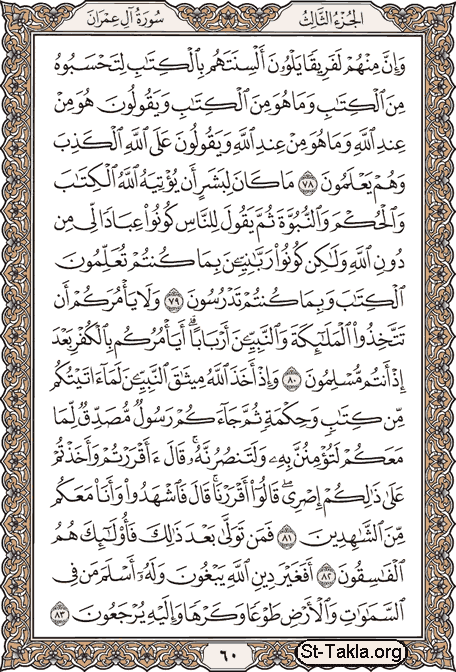 الجزء الثالث
سورة آل عمران
وَإِنَّ مِنْهُمْ لَفَرِيقًا يَلْوُۥنَ أَلْسِنَتَهُم بِالْكِتَٰبِ لِتَحْسَبُوهُ
مِنَ الْكِتَٰبِ وَمَا هُوَ مِنَ الْكِتَٰبِ وَيَقُولُونَ هُوَ مِنْ
عِندِ اللَّهِ وَمَا هُوَ مِنْ عِندِ اللَّهِ وَيَقُولُونَ عَلَى اللَّهِ الْكَذِبَ
وَهُمْ يَعْلَمُونَ ٧٨ مَا كَانَ لِبَشَرٍ أَن يُؤْتِيَهُ اللَّهُ الْكِتَٰبَ
وَالْحُكْمَ وَالنُّبُوَّةَ ثُمَّ يَقُولَ لِلنَّاسِ كُونُوا۟ عِبَادًا لِّى مِن
دُونِ اللَّهِ وَلَٰكِن كُونُوا۟ رَبَّٰنِيِّۦنَ بِمَا كُنتُمْ تُعَلِّمُونَ
الْكِتَٰبَ وَبِمَا كُنتُمْ تَدْرُسُونَ ٧٩ وَلَا يَأْمُرَكُمْ أَن
تَتَّخِذُوا۟ الْمَلَٰٓئِكَةَ وَالنَّبِيِّۦنَ أَرْبَابًا ۗ أَيَأْمُرُكُم بِالْكُفْرِ بَعْدَ
إِذْ أَنتُم مُّسْلِمُونَ ٨٠ وَإِذْ أَخَذَ اللَّهُ مِيثَٰقَ النَّبِيِّۦنَ لَمَآ ءَاتَيْتُكُم
مِّن كِتَٰبٍ وَحِكْمَةٍ ثُمَّ جَآءَكُمْ رَسُولٌ مُّصَدِّقٌ لِّمَا
مَعَكُمْ لَتُؤْمِنُنَّ بِهِۦ وَلَتَنصُرُنَّهُۥ ۚ قَالَ ءَأَقْرَرْتُمْ وَأَخَذْتُمْ
عَلَىٰ ذَٰلِكُمْ إِصْرِى ۖ قَالُوٓا۟ أَقْرَرْنَا ۚ قَالَ فَاشْهَدُوا۟ وَأَنَا۠ مَعَكُم
مِّنَ الشَّٰهِدِينَ ٨١ فَمَن تَوَلَّىٰ بَعْدَ ذَٰلِكَ فَأُو۟لَٰٓئِكَ هُمُ
الْفَٰسِقُونَ ٨٢ أَفَغَيْرَ دِينِ اللَّهِ يَبْغُونَ وَلَهُۥٓ أَسْلَمَ مَن فِى
السَّمَٰوَٰتِ وَالْأَرْضِ طَوْعًا وَكَرْهًا وَإِلَيْهِ يُرْجَعُونَ ٨٣
٦٠
St-Takla.org